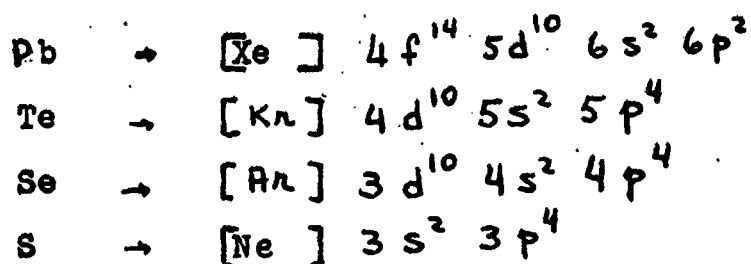 Pb → [Xe ] 4f¹⁴ 5d¹⁰ 6s² 6p²
Te → [Kr] 4d¹⁰ 5s² 5p⁴
Se → [Ar] 3d¹⁰ 4s² 4p⁴
S → [Ne ] 3s² 3p⁴